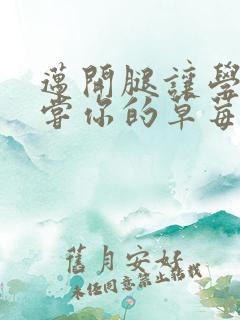 邁開腿讓學
嘗你的草莓
舊月安好
未经同意禁止转载